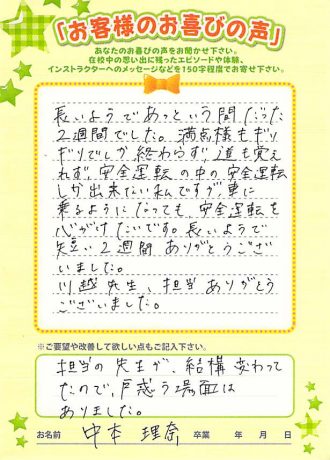 「お客様のお喜びの声」
あなたのお喜びの声をお聞かせ下さい。
在校中の思い出に残ったエピソードや体験、
インストラクターへのメッセージなどを150字程度でお寄せ下さい。
長いようであっという間だった
2週間でした。満点様もギリ
ギリでしか終わらず、道も覚え
れず、安全運転の中の安全運転
しか出来ない私ですが、車に
乗るようになっても、安全運転を
心がけたいです。長いようで
短い2週間ありがとうござ
いました。
川越先生、担当ありがとう
ございました。
※ご要望や改善して欲しい点もご記入下さい。
担当の先生が、結構変わって
たので、戸惑う場面は
ありました。
お名前 中本 理奈 卒業 年 月 日